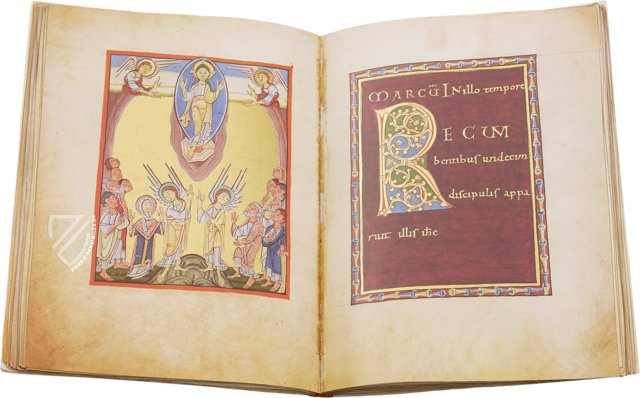 MARCŨ IN illo tempore
RECUM
bentibus undecim
discipulis appa
ruit illis ih̄c